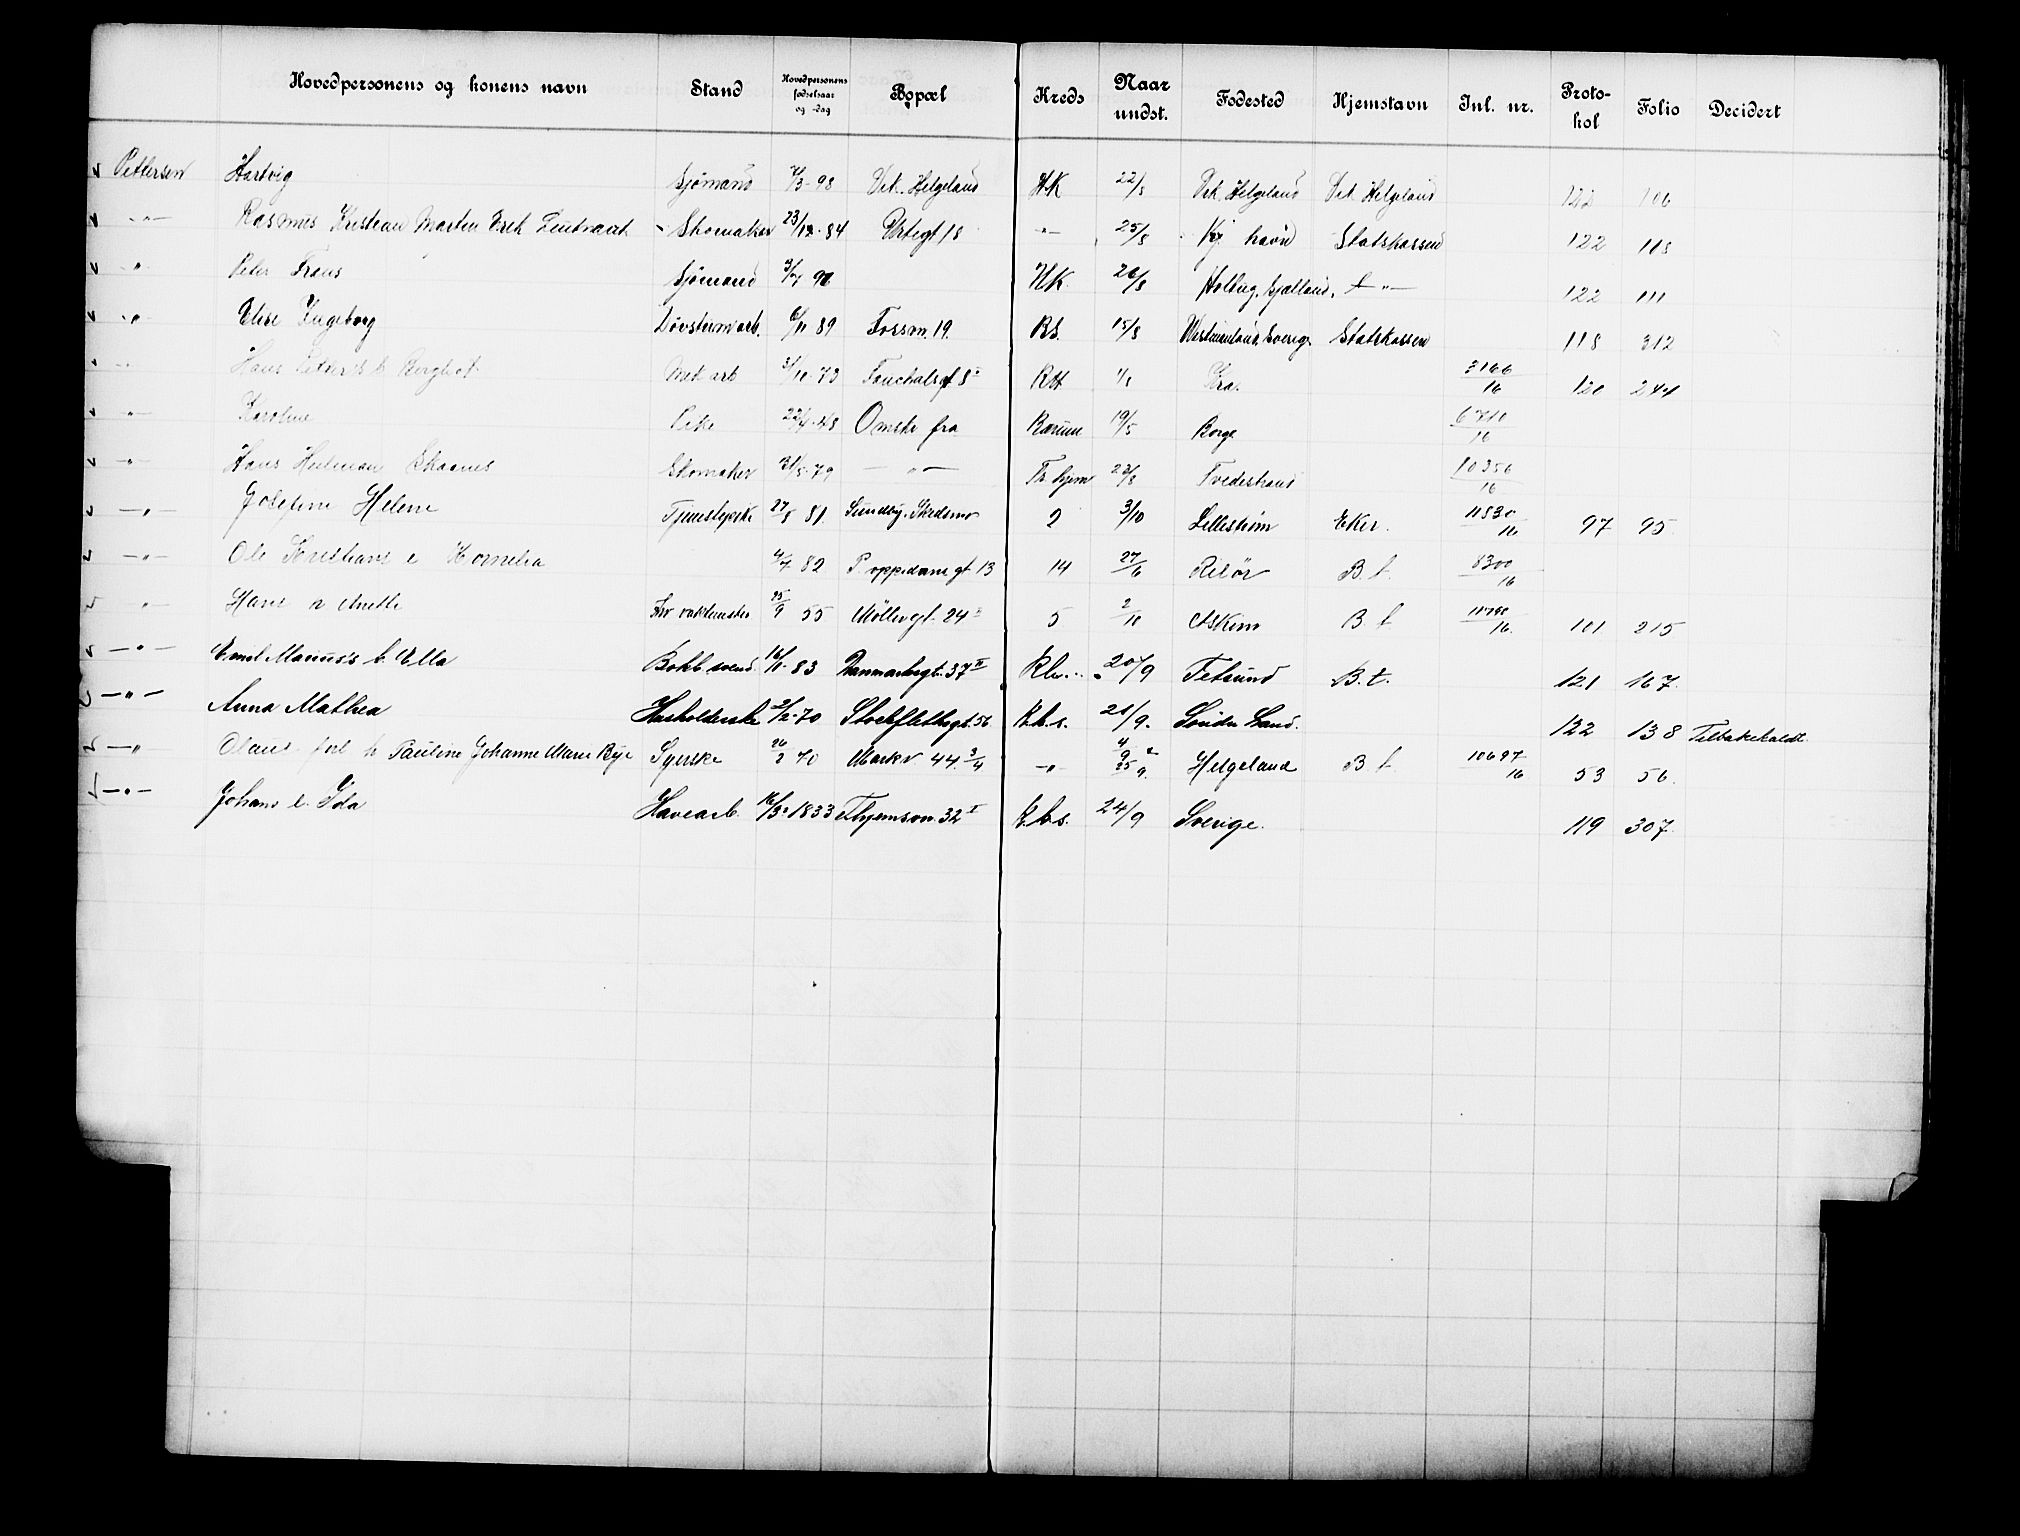 Hovedpersonens og konens navn Stand Hovedpersonens fødselsaar og -dag Bopæl Kreds Naar undst. Fødested Hjemstavn Inl. nr. Protokol Folio Decidert
Pettersen Hartvig Sjømand 98 Helgeland H.K 22/8 Helgeland Helgeland 122 106
-"- Rasmus Kristian Martin Skomaker 23/12-84 Urtegt 18 -"- 25/8 Kj havn Statskassen 122 118
" Peter Frans Sjømand H.K. 26/8 Sjælland. -"- 122 111
" Elise Ingeborg 6/11 89 Fossvn. 19. 15/8 Sverige Statskassen 118 312
" Hans Met arb 3/10-73 1/8 Kra. 3166/16 120 244
-"- Karoline Pike 22/4-48 Omstr fra Bærum 19/5 Borge 6710/16
-"- Hans Skomaker 31/5-79 -"- hjem 23/8 Tvedestrand 10356/16
-"- Josefine Helene Tjenestepike 27/8 81. Sundby, Skedsmo 2 3/10 Lillestrøm Eker. 11530/16 97 95
-"- Ole Kristians e Kornelia 4/7 82 P. oppedams gt. 13 14 27/6 Risør B. t. 8300/16
" Hans e Anette 25/9 55 Møllergt. 24 5 2/10 Askim B t. 101 215
-"- Emil Marius's h. Ella Bokb. svend 16/11-83 Danmarksgt. 37 II 20/9 Fetsund B. t. 121 167.
-"- Anna Mathea Husholderske 2/2-70 Stockflethsgt. 56 K.b.s. 21/9. Søndre Land. 122 138 Tilbakekaldt
-"- Olaus Pauline Johanne Marie Bye Syerske 26/2 70 Markv 44 3/4 -"- 4/9 25/9. Helgeland B t. 10697/16 53 56.
-"- Johans e. Ida Havearb. 1833 32 I K.b.s. 24/9 Sverige. 119 307.